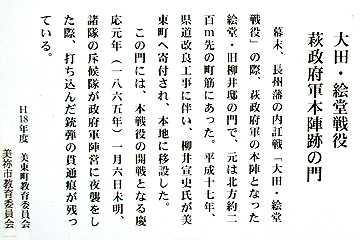 大田・絵堂戦役
萩政府軍本陣跡の門
幕末、長州藩の内訌戦「大田・絵堂
戦役」の際、萩政府軍の本陣となった
絵堂・旧柳井邸の門で、元は北方約二
百m先の町筋にあった。平成十七年、
県道改良工事に伴い、柳井宣史氏が美
東町へ寄付され、本地に移設した。
この門には、本戦役の開戦となる慶
応元年（一八六五年）一月六日未明、
諸隊の斥候隊が政府軍陣営に夜襲をし
た際、打ち込んだ銃弾の貫通痕が残っ
ている。
H18年度 美東町教育委員会
美祢市教育委員会